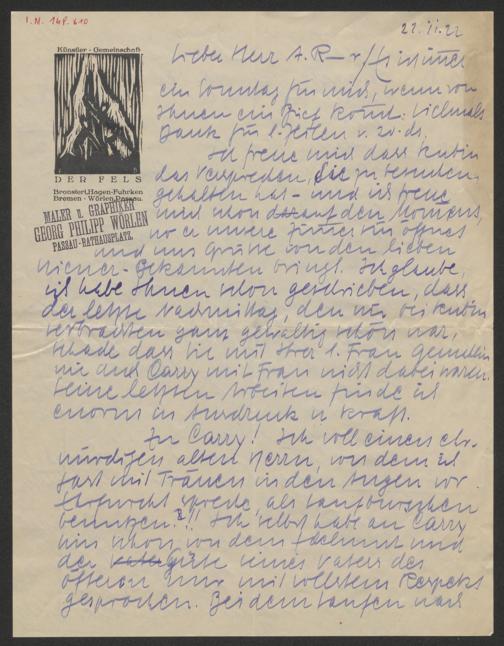 I.N. 147.610
22.II.22
Künstler-Gemeinschaft
DER FELS
Bronstert, Hagen-Fuhrken
Bremen-Wörlen, Passau.
MALER U. GRAPHIKER
GEORG PHILIPP WÖRLEN
PASSAU-RATHAUSPLATZ
Lieber Herr A.R-r/
ein Sonntag für mich, wenn von
Ihnen ein Brief kommt. Vielmals
Dank für l. Zeilen v. 20. ds.
Ich freue mich dass Kubin
das Versprechen, Sie zu besuchen
gehalten hat - und ich freue
mich schon auf den Moment,
wo er unsere Zimmer öffnet
und uns Grüße von den lieben
Wiener-Bekannten bringt. Ich glaube,
ich habe Ihnen schon geschrieben, dass
der letzte Nachmittag, den wir bei Kubin
verbrachten ganz gewaltig schön war,
schade dass Sie mit Ihrer l. Frau Gemahlin
und Carry mit Frau nicht dabei waren.
Seine letzten Arbeiten finde ich
enorm in Ausdruck u. Kraft.
Zu Carry! Ich soll einen ehr-
würdigen alten Herrn, von dem ich
fast mit Tränen in den Augen vor
Ehrfurcht spreche, als
benutzen?!! Ich selbst habe an Carry
hin schon, von dem und
der Güte seines Vaters des
öfteren nur mit vollstem Respekt
gesprochen. Bei dem nach